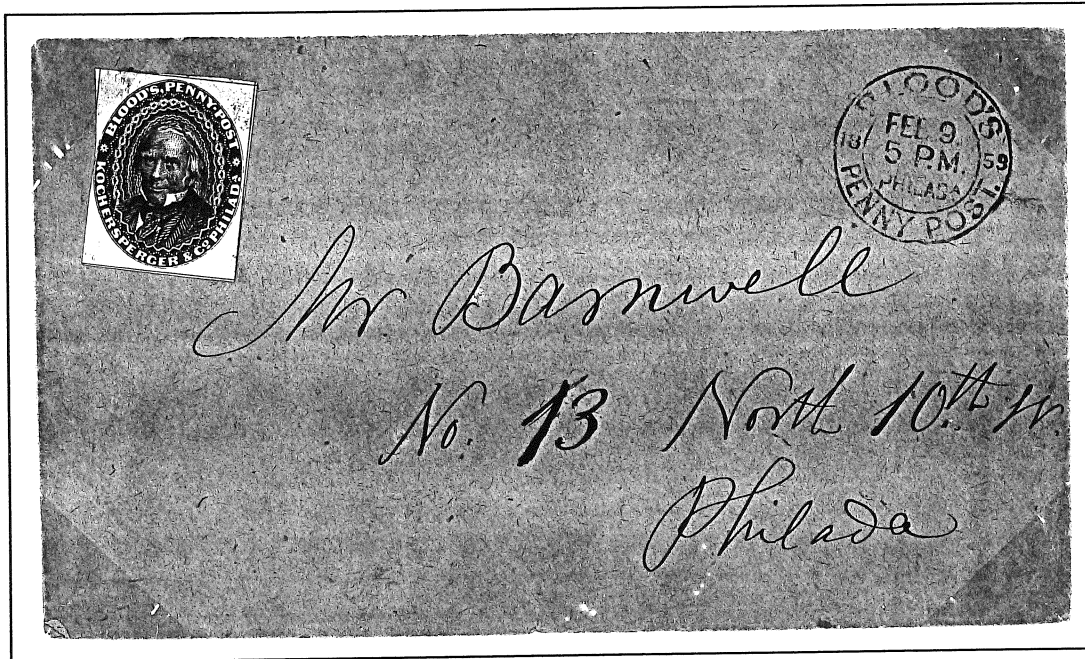 BLOOD'S PENNY POST
KOCHERSPERGER & CO. PHILADA.
BLOOD'S
FEB 9.
18 59
5 P.M.
PHILADA
PENNY POST.
Mr Barnwell
No. 13 North 10th st.
Philada